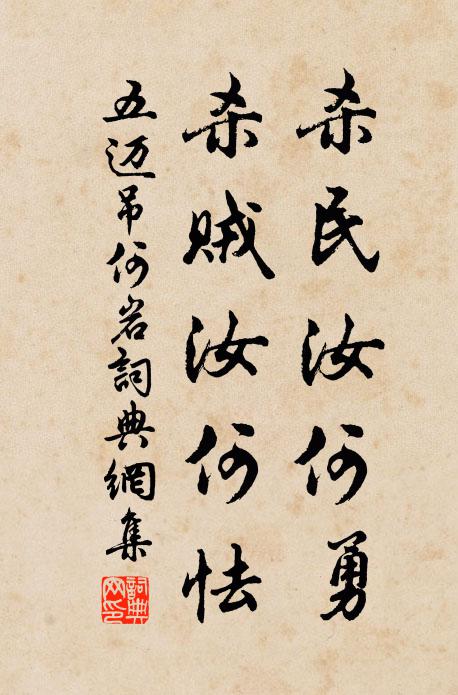 杀民汝何勇
杀贼汝何怯
五迈吊何岩詞典網集
詞典
网印